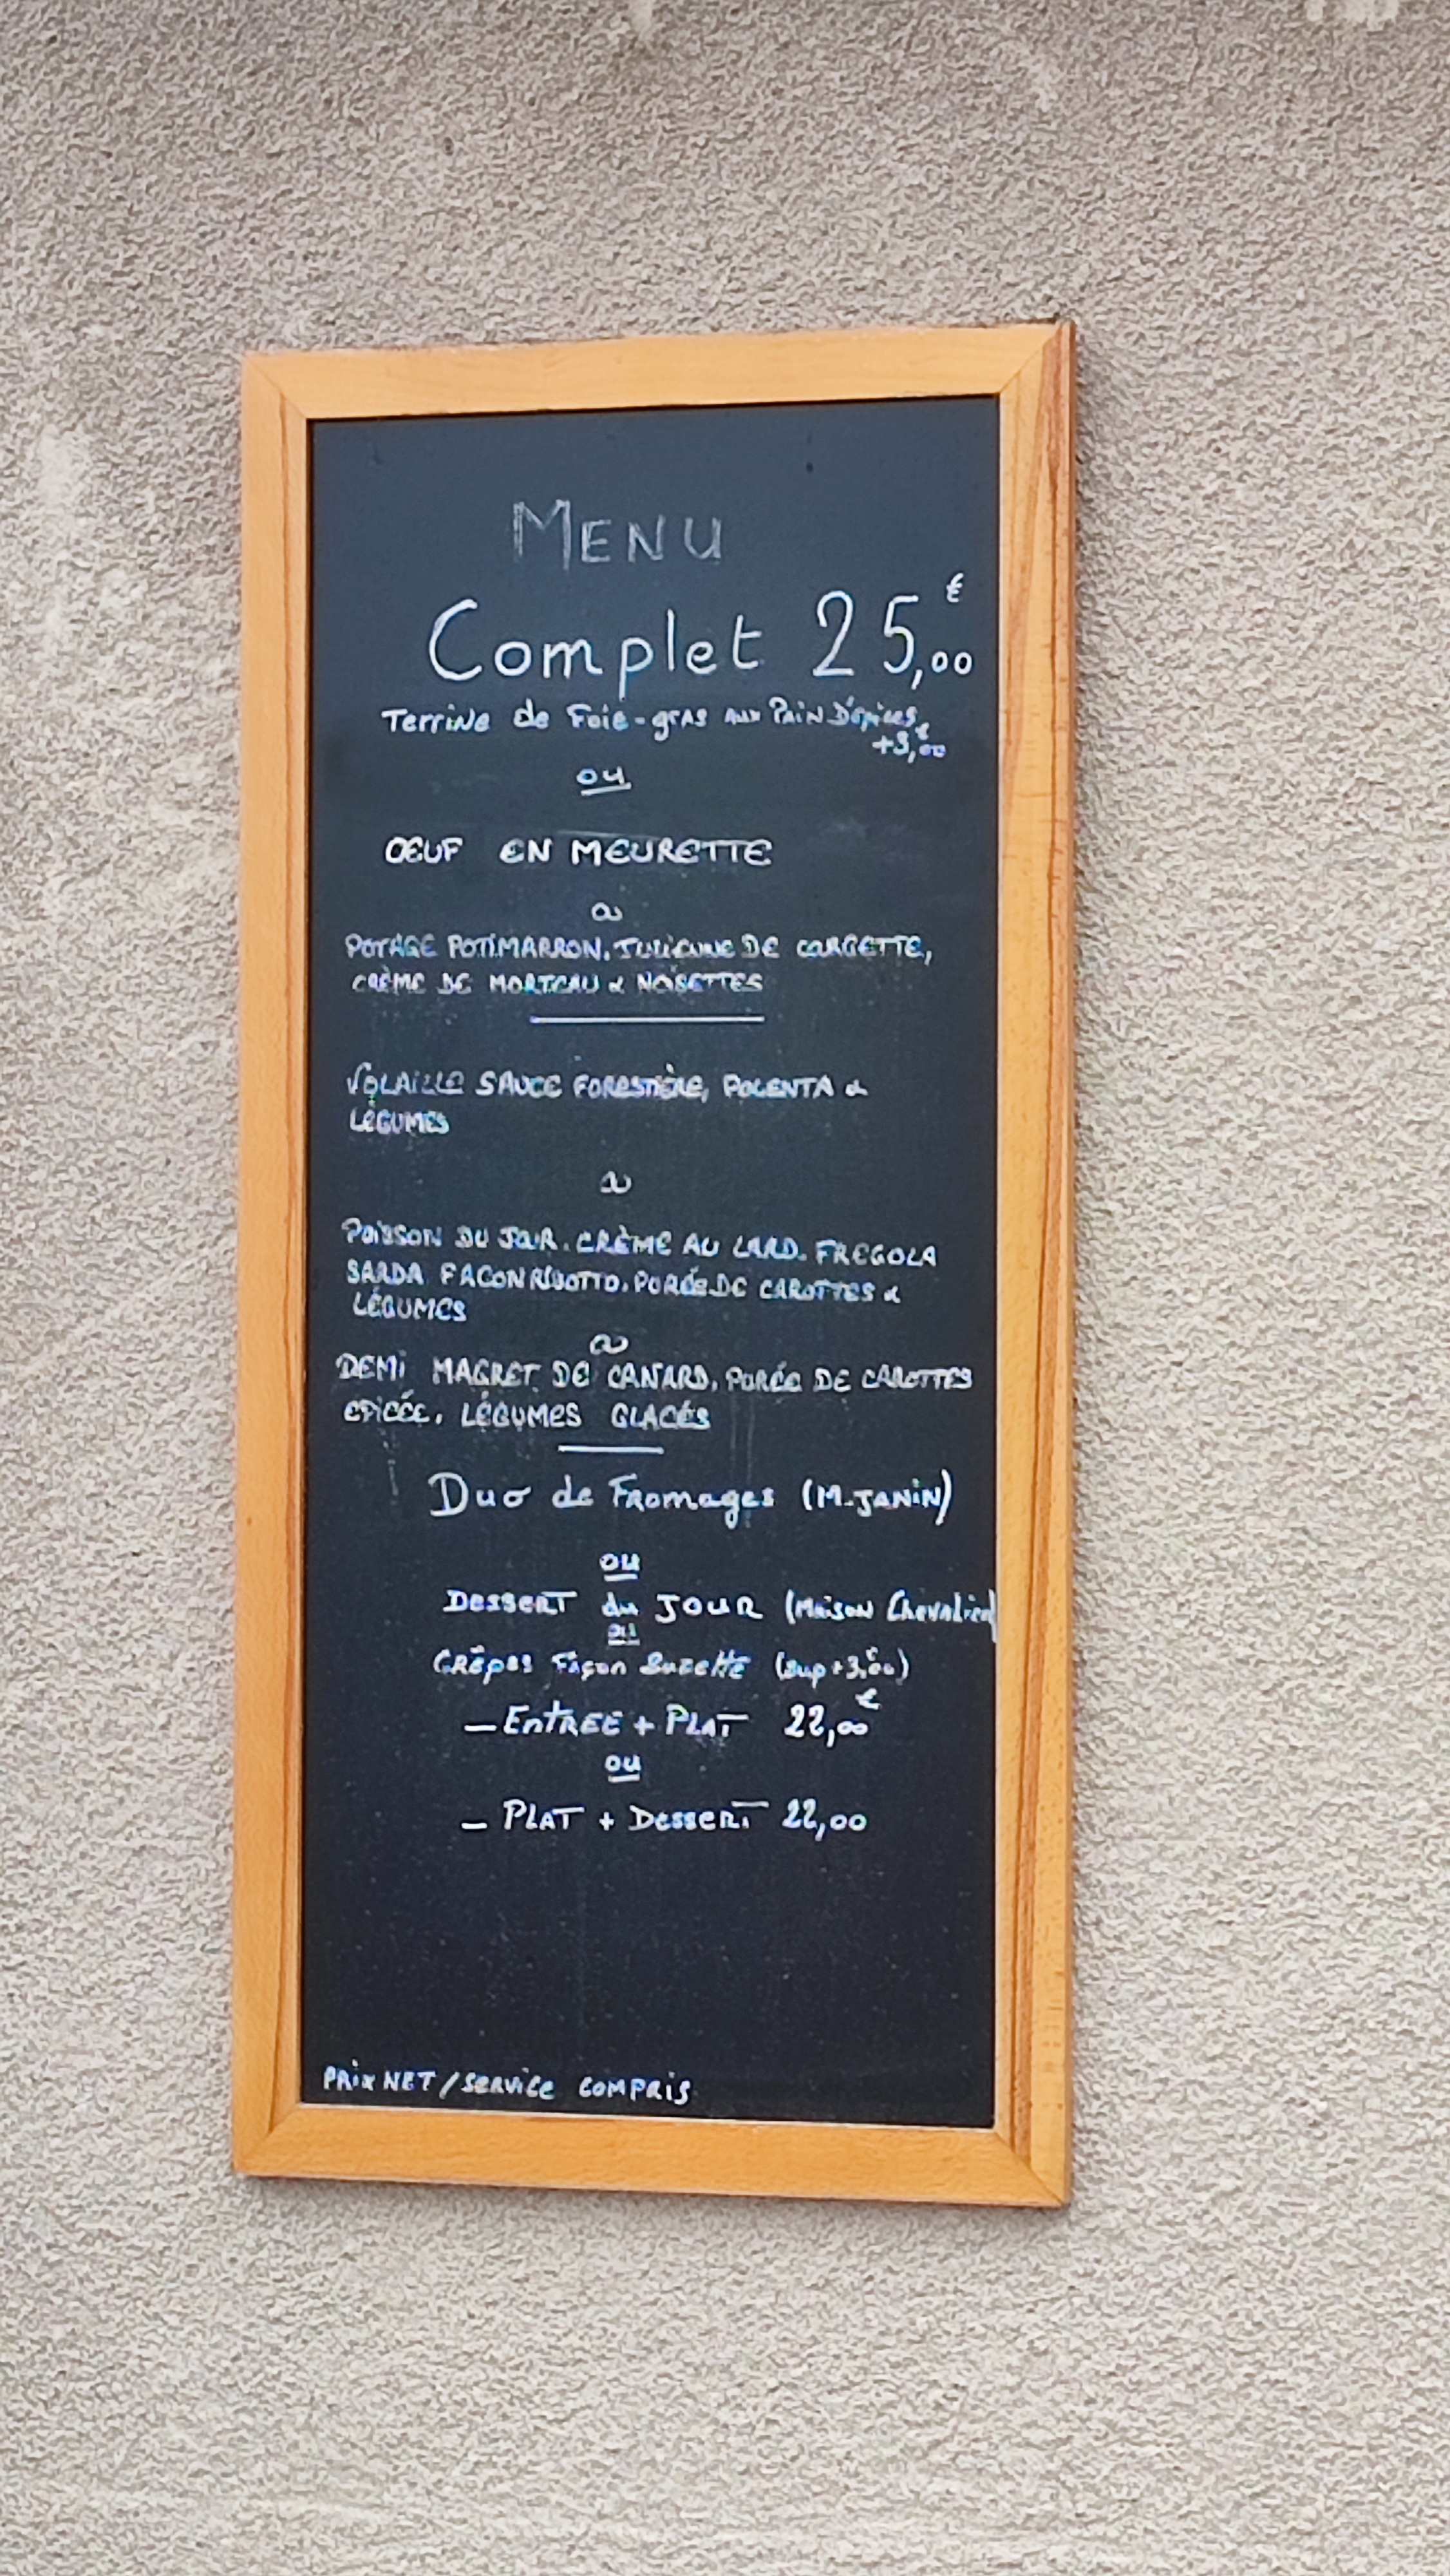 MENU
Complet 25,00€
Terrine de Foie-gras aux Pain D'épices
+3,00€
ou
ŒUF EN MEURETTE
ou
POTAGE POTIMARRON, JULIENNE DE COURGETTE,
CRÈME DE MORTEAU & NOISETTES
VOLAILLE SAUCE FORESTIÈRE, POLENTA &
LÉGUMES
ou
POISSON DU JOUR, CRÈME AU LARD, FREGOLA
SARDA FACON RISOTTO, PURÉE DE CAROTTES &
LÉGUMES
ou
DEMI MAGRET DE CANARD, PURÉE DE CAROTTES
EPICÉE, LÉGUMES GLACÉS
Duo de Fromages (M.JANIN)
ou
Dessert du JOUR (Maison Chevalier)
ou
Crêpes Façon Suzette (sup+3,00€)
- Entrée + Plat 22,00€
ou
- Plat + Dessert 22,00
PRIX NET / Service COMPRIS